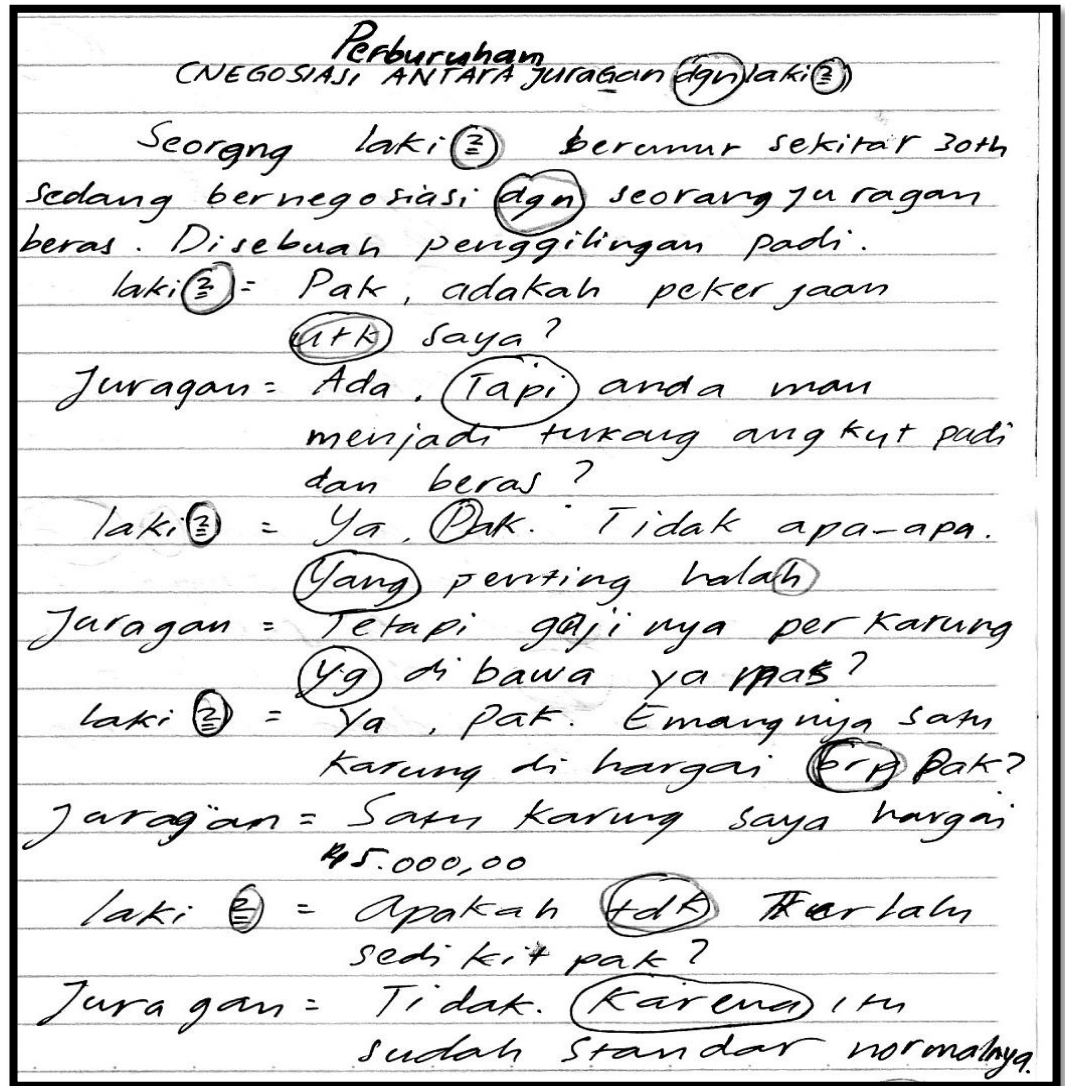 Perburuham
(NEGOSIASI ANTARA juragan dgn laki2)
Seorgng laki2 berumur sekitar 30th
sedang bernegosiasi dgn seorang juragan
beras. Disebuah penggilingan padi.
laki2 = Pak, adakah pekerjaan
utk saya?
Juragan = Ada. Tapi anda mau
menjadi tukang angkut padi
dan beras?
laki2 = Ya, Pak. Tidak apa-apa.
Yang penting halah
Juragan = Tetapi gajinya per karung
yg di bawa ya mas?
laki2 = Ya, pak. Emangnya satu
karung di hargai brp Pak?
Juragan = Satu karung saya hargai
Rp5.000,00
laki2 = Apakah tdk Terlalu
sedikit pak?
Juragan = Tidak. Karena itu
sudah standar normalnya.